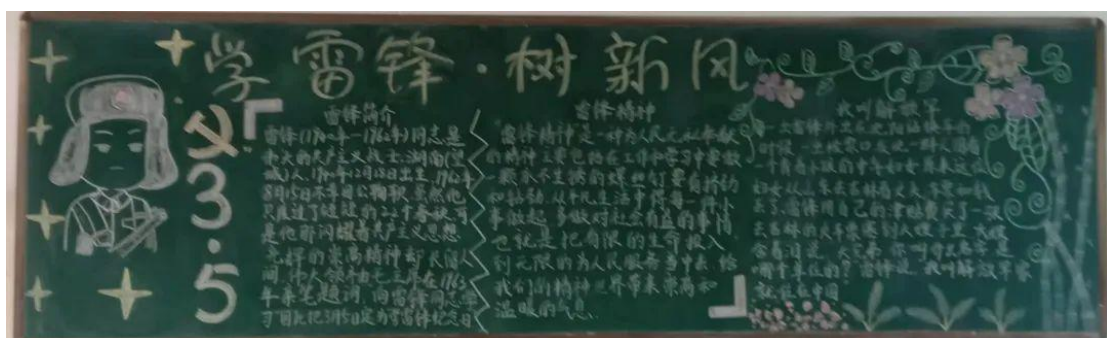 学雷锋·树新风
3.5
雷锋简介
雷锋(1940年—1962年)同志是
伟大的共产主义战士.湖南(望
城)人,1940年12月18日出生,1962年
8月15日不幸因公殉职.虽然他
只度过了短短的22个春秋,可
是他那闪耀着共产主义思想
光辉的崇高精神却长留人
间,伟人领袖毛主席在1963
年亲笔题词,向雷锋同志学
习因此把3月5日定为学雷锋纪念日
雷锋精神
雷锋精神是一种为人民无私奉献
的精神主要包括在工作和学习中要做
一颗永不生锈的螺丝钉要有持韧
和钻劲.从平凡生活中将每一件小
事做起多做对社会有益的事情
也就是把有限的生命投入
到无限的为人民服务当中去给
我们的精神世界带来崇高和
温暖的气息.
我叫解放军
一次雷锋外出在沈阳站换车的
时候,一出检票口,发现一群人围着
一个背着小孩的中年妇女原来这位
妇女从山东去吉林看丈夫车票和钱
丢了.雷锋用自己的津贴费买了一张
去吉林的火车票塞到大嫂手里,大嫂
含着泪说,大兄弟,你叫什么名字是
哪个单位的?雷锋说,我叫解放军家
就住在中国